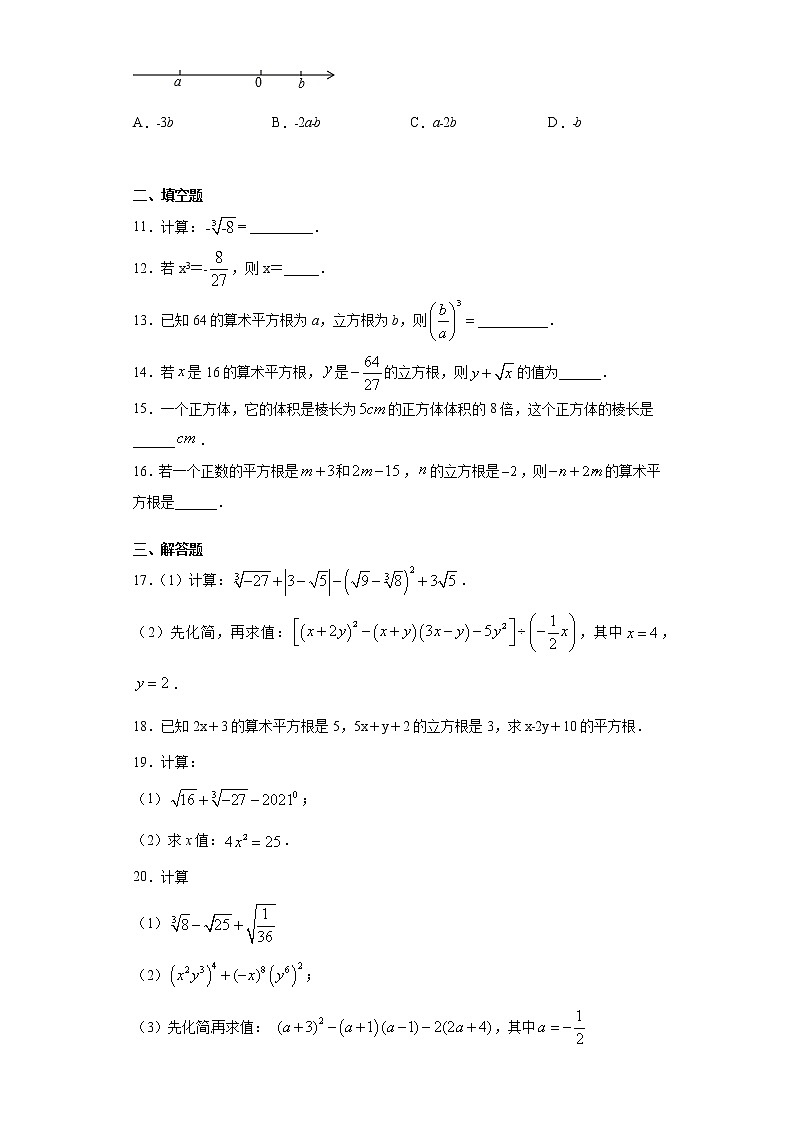 a 0 b
A．-3b B．-2a-b C．a-2b D．-b
二、填空题
11．计算：-∛-8 = _________．
12．若 x³＝-8/27，则 x＝_____．
13．已知 64 的算术平方根为 a，立方根为 b，则(b/a)³ = __________．
14．若 x 是 16 的算术平方根，y 是 −64/27 的立方根，则 y+√x 的值为______．
15．一个正方体，它的体积是棱长为 5cm 的正方体体积的 8 倍，这个正方体的棱长是
______cm．
16．若一个正数的平方根是 m+3 和 2m−15，n 的立方根是 −2，则 −n+2m 的算术平
方根是______．
三、解答题
17．（1）计算：∛−27+|3−√5|−(√9−∛8)²+3√5．
（2）先化简，再求值：[(x+2y)²−(x+y)(3x−y)−5y²]÷(−1/2 x)，其中 x=4，
y=2．
18．已知 2x＋3 的算术平方根是 5，5x＋y＋2 的立方根是 3，求 x-2y＋10 的平方根．
19．计算：
（1）√16+∛−27−2021⁰；
（2）求 x 值：4x²=25．
20．计算
（1）∛8−√25+√(1/36)
（2）(x²y³)⁴+(−x)⁸(y⁶)²；
（3）先化简再求值： (a+3)²−(a+1)(a−1)−2(2a+4)，其中 a=−1/2